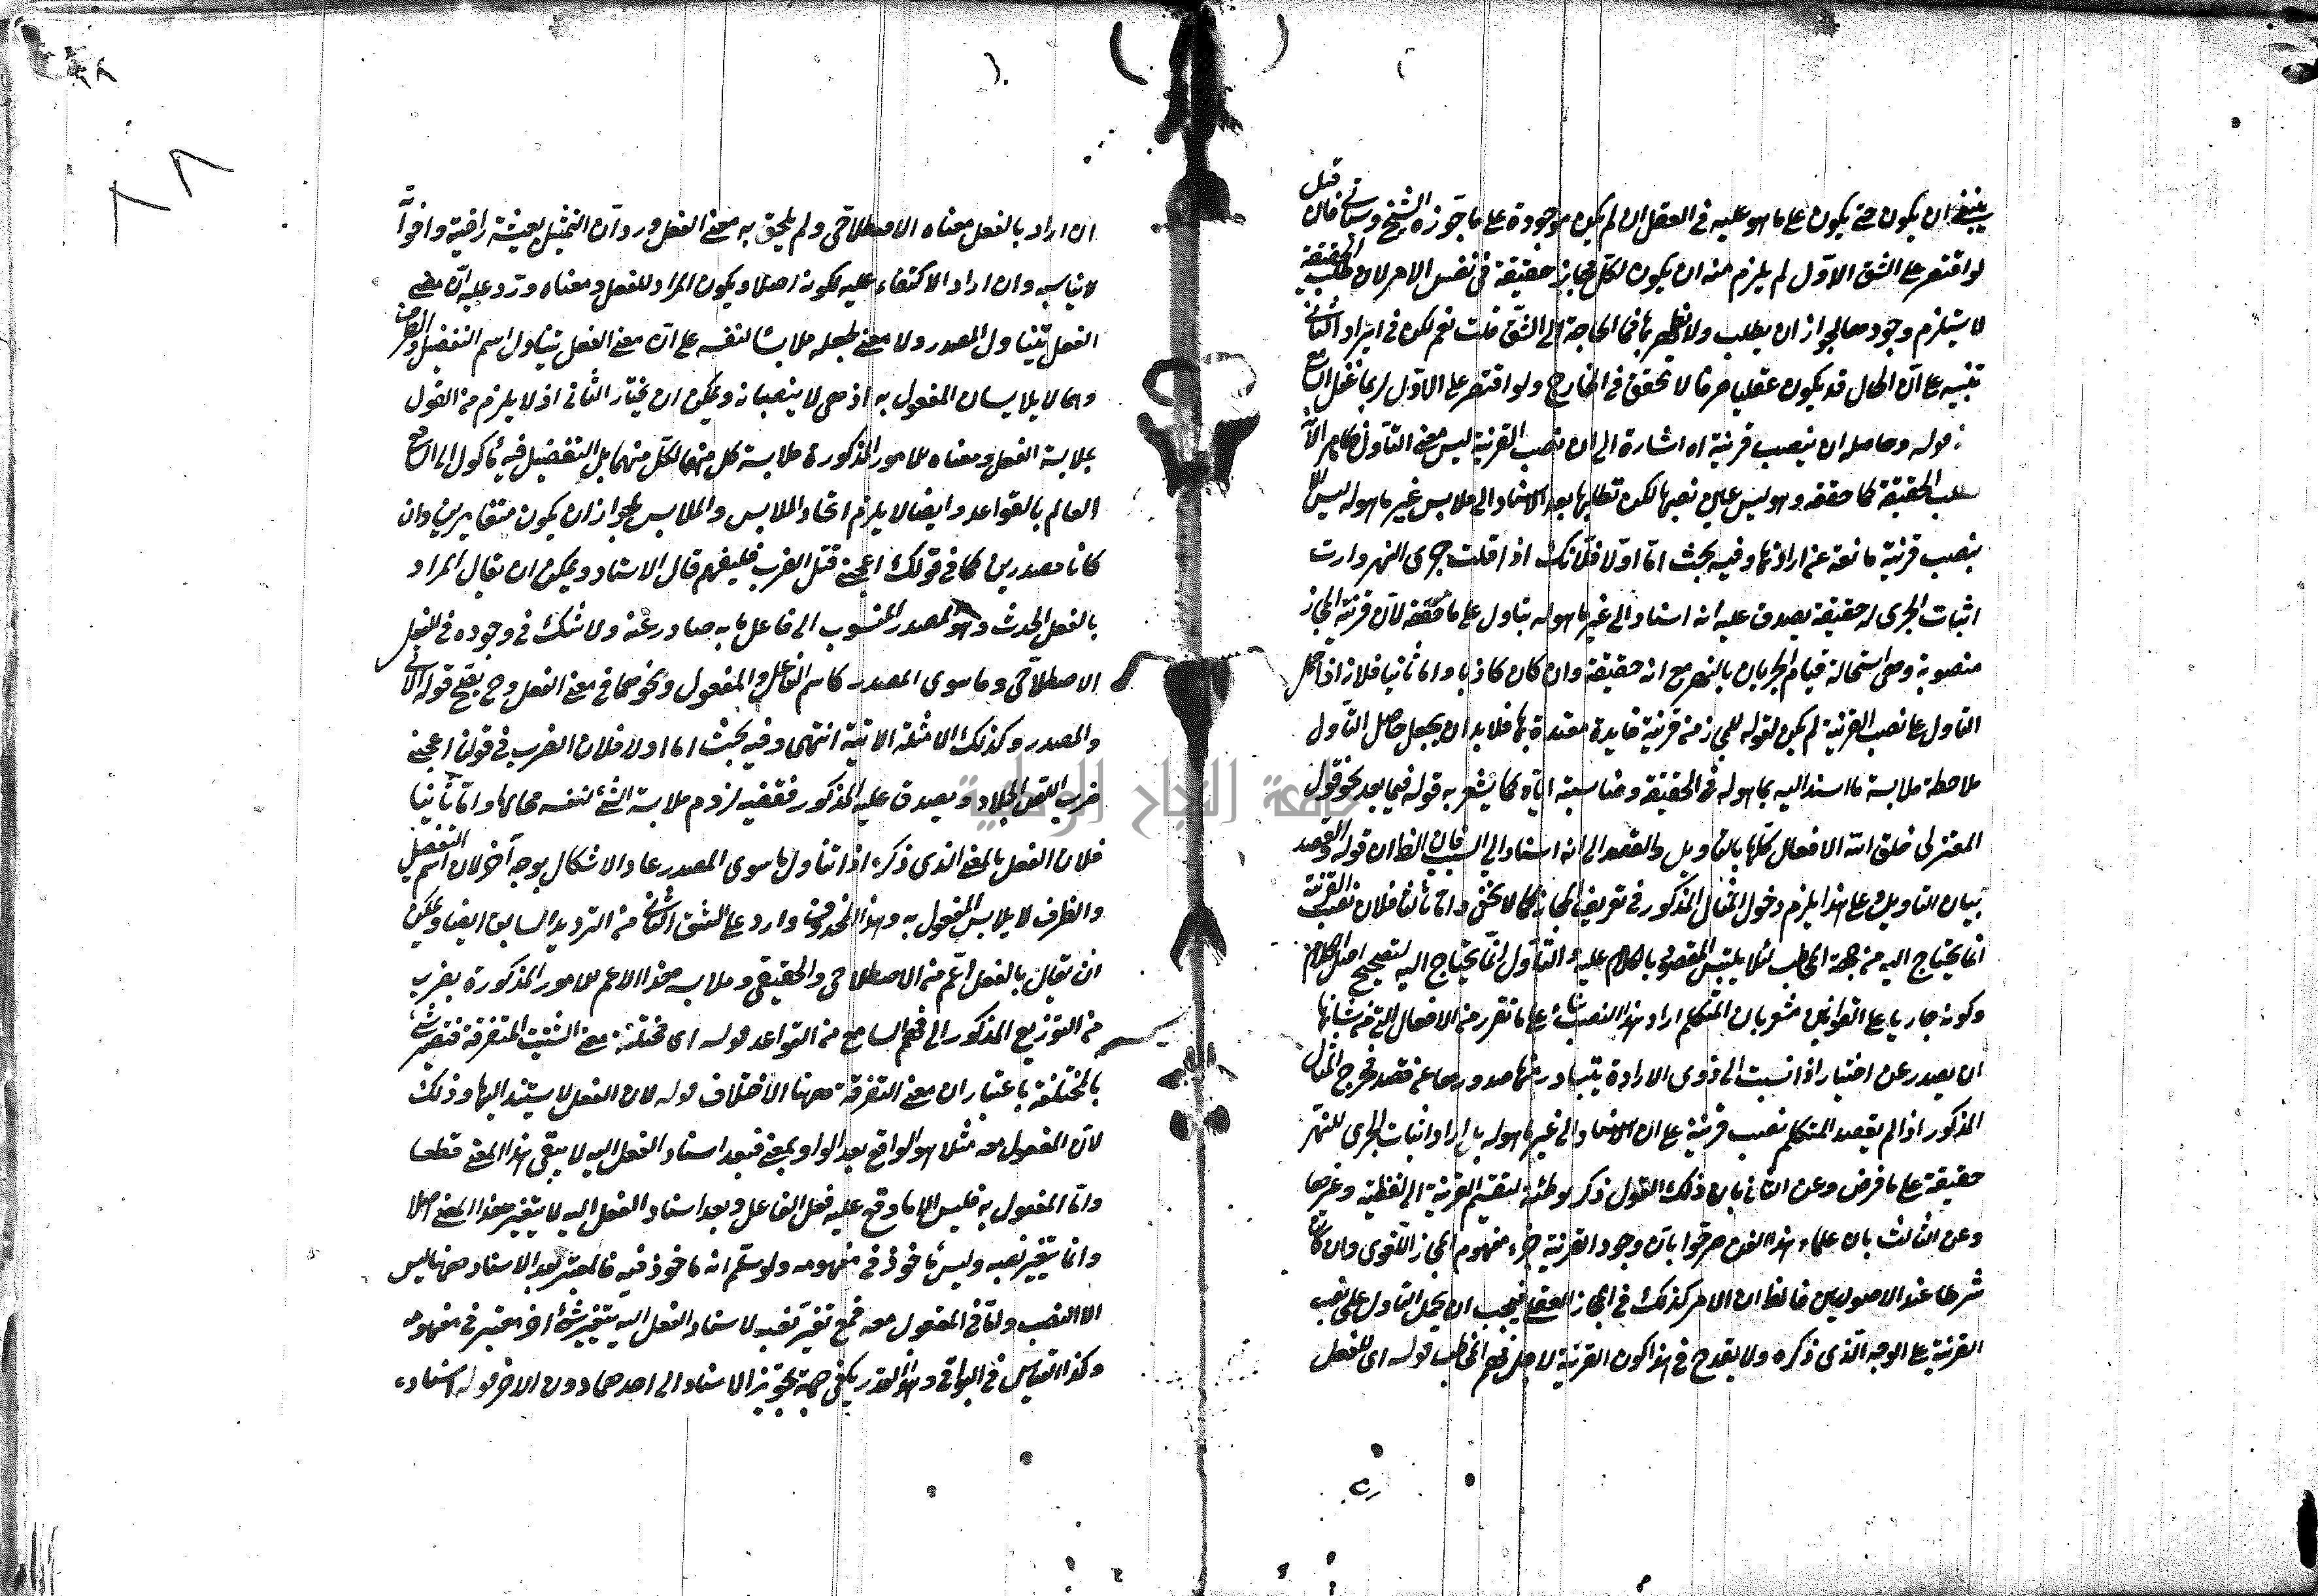 ينبغي ان يكون حتى يكون على ما هو عليه في العقل ان لم يكن موجودة على ما جوزه الشيخ وسيأتي فان قيل
لو اقتصر على الشق الاول لم يلزم منه ان يكون لكل مجاز حقيقة في نفس الامر لان طلب الحقيقة
لا يستلزم وجودها لجواز ان يطلب ولا يظهر بها فما الحاجة الى الشق قلت نعم لكن في ايراد الثاني
تنبيه على ان الحال قد يكون عقليا صرفا لا تحقق في الخارج ولو اقتصر على الاول لربما غفل السامع
قوله وحاصله ان ينصب قرينة اه اشارة الى ان نصب القرينة ليس معنى التأول
طلب الحقيقة كما حققه وهو ليس عين نصبها لكن تطلبها بعد الاسناد الى ملابس غير ما هو له ليس الا
بنصب قرينة مانعة عن ارادتها وفيه بحث اما اولا فلانك اذا قلت جرى النهر واردت
اثبات الجري له حقيقة يصدق عليه انه اسناد الى غير ما هو له بتاول على ما حققه لان قرينة المجاز
منصوبة وهى استحالة قيام الجريان بالنهر مع انه حقيقة وان كان كاذبا واما ثانيا فلانه اذا حمل
التاول على نصب القرينة لم يكن لقوله للمجاز من قرينة فايدة معتدة بها فلا بد ان يجعل حاصل التأول
ملاحظة ملابسة ما اسند اليه بما هو له في الحقيقة ومناسبته اياه كما يشعر به قوله فيما بعد نحو قول
المعتزلى خلق الله الافعال كلها بالتاويل والقصد الى انه اسناد الى السبب فان الظ ان قوله والقصد
بيان التاويل وعلى هذا يلزم دخول المثال المذكور في تعريف المجاز كما لا يخفى واما ثالثا فلان نصب القرينة
انما يحتاج اليه من جهة المخاطب لئلا يلتبس المقصود بالكلام عليه والتأول انما يحتاج اليه لتصحيح اصل الكلام
وكونه جاريا على القوانين مشعر بان المتكلم اراد هذا النصب على ما تقرر من الافعال التى من شانها
ان يصدر عن اختيار اذا نسبت الى ذوى الارادة يتبادر منها صدورها عن قصد فخرج المثال
المذكور اذا لم يقصد المتكلم نصب قرينة على ان الاسناد الى غير ما هو له بل اراد اثبات الجرى للنهر
حقيقة على ما فرض وعن الثانى بان ذلك القول ذكر توطئة لتقسيم القرينة الى لفظية وغيرها
وعن الثالث بان علماء هذا الفن صرحوا بان وجود القرينة جزء مفهوم المجاز اللغوى وان كان
شرطا عند الاصوليين فالظ ان الامر كذلك في المجاز العقلى فيجب ان يحمل التاول على نصب
القرينة على الوجه الذى ذكره ولا يقدح في هذا كون القرينة لاجل فهم المخاطب قوله اى للفعل
ان اراد بالفعل معناه الاصطلاحى ولم يلحق به معنى الفعل ورد ان التمثيل بعيشة راضية واخواتها
لا يناسبه وان اراد الاكتفاء عليه لكونه اصلا ويكون المراد للفعل ومعناه ورد عليه ان معنى
الفعل يتناول المصدر ولا معنى لجعله ملابسا لنفسه على ان معنى الفعل يتناول اسم التفضيل والظرف
وهما لا يلابسان المفعول به اذ هى لا ينصبانه ويمكن ان يختار الثانى اذ لا يلزم من القول
بملابسة الفعل ومعناه للامور المذكورة ملابسة كل منهما لكل منها بل التفضيل فيه موكول الى السامع
العالم بالقواعد وايضا لا يلزم اتحاد الملابس والملابس لجواز ان يكون متغايرين وان
كانا مصدرين كما في قولك اعجبنى قتل الضرب فليفهم قال الاستاد ويمكن ان يقال المراد
بالفعل الحدث وهو المصدر المنسوب الى فاعل ما به صادر عنه ولا شك في وجوده في الفعل
الاصطلاحى وما سوى المصدر كاسم الفاعل والمفعول ونحوهما في معنى الفعل وح يصح قوله الاتى
والمصدر وكذلك الامثلة الاتية انتهى وفيه بحث اما اولا فلان الضرب في قولنا اعجبنى
ضرب اللص الجلاد ويصدق عليه المذكور فقضيه لزوم ملابسة الشئ لنفسه بحالها واما ثانيا
فلان الفعل بالمعنى الذى ذكره اذا تناول ما سوى المصدر عاد الاشكال بوجه آخر لان اسم التفضيل
والظرف لا يلابس المفعول به وهذا المحذور وارد على الشق الثانى من الترديد السابق ايضا ويمكن
ان يقال بالفعل اعم من الاصطلاحى والحقيقى وملابسه هذا الاعم للامور المذكورة بضرب
من التوزيع المذكور الى فهم السامع من القواعد قوله اى مختلفة معنى الشتيت المتفرقة فتفسير شتى
بالمختلفة باعتبار ان معنى التفرقة ههنا الاختلاف قوله لان الفعل لا يستند اليها وذلك
لان المفعول معه مثلا هو الواقع بعد الواو بمعنى فبعد اسناد الفعل اليه لا يبقى هذا المعنى قطعا
واما المفعول به فليس الا ما وقع عليه فعل الفاعل وبعد اسناد الفعل اليه لا يتغير هذا المعنى اصلا
وانما يتغير نصبه وليس ماخوذ في مفهومه ولو سلم انه ماخوذ فيه فالمعتبر بعد الاسناد ههنا ليس
الا النصب واما في المفعول معه فمع تغير نصبه لاسناد الفعل اليه يتغير شئ اخر معتبر في مفهومه
وكذا القياس في البواقى وهذا القدر يكفى جهة تجويز الاسناد الى احدهما دون الاخر قوله اسناده
جامعة النجاح الوطنية